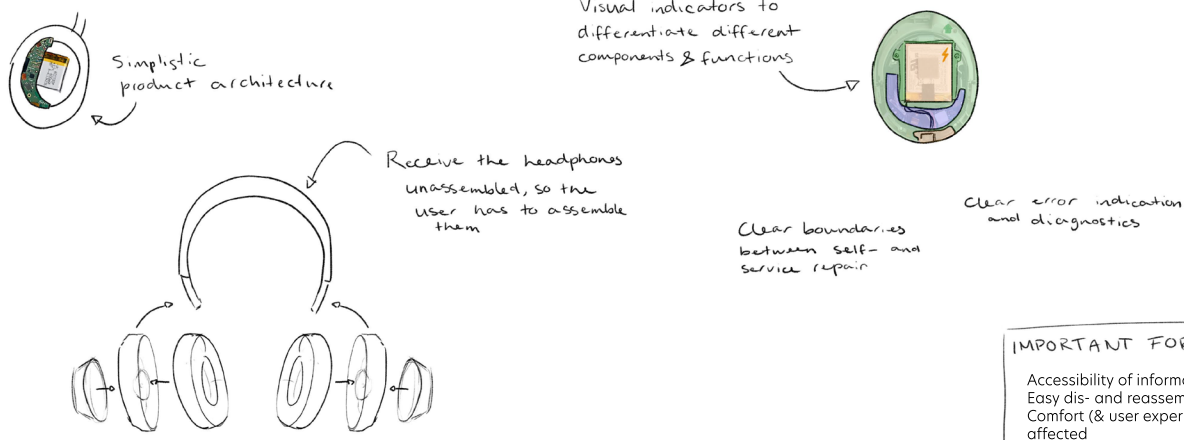 Simplistic
product architecture
Visual indicators to
differentiate different
components & functions
Receive the headphones
unassembled, so the
user has to assemble
them
Clear boundaries
between self- and
service repair
Clear error indication
and diagnostics
IMPORTANT FOR
Accessibility of informa
Easy dis- and reassem
Comfort (& user exper
affected